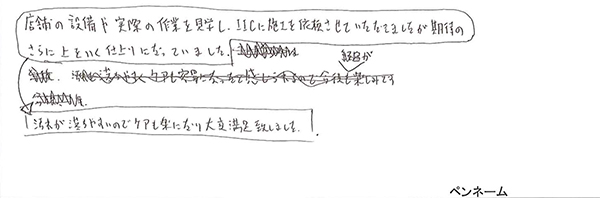 店舗の設備や実際の作業を見学し、IICに施工を依頼させていただきましたが期待の
さらに上をいく仕上りになっていました。
経過が
汚れが落ちやすくケアも容易になったと感じられるので今後も楽しみです
汚れが落ちやすいのでケアも楽になり大変満足致しました。
ペンネーム